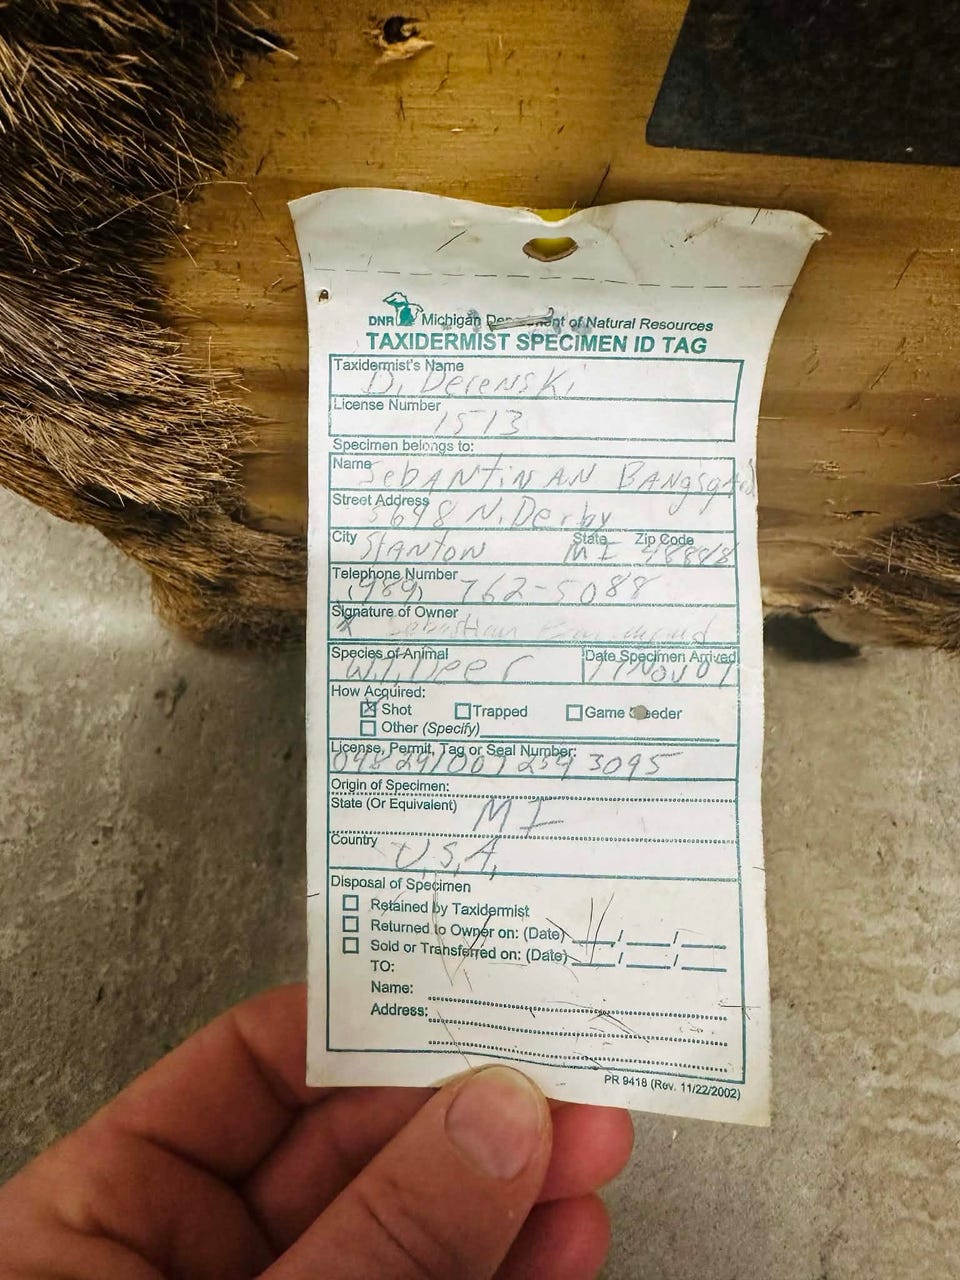 DNR Michigan Department of Natural Resources
TAXIDERMIST SPECIMEN ID TAG
Taxidermist's Name
D. Derenski
License Number
1513
Specimen belongs to:
Name
SebANTiNAN
Street Address
5698 N. Derby
City State Zip Code
STANTON MI 48888
Telephone Number
(989) 762-5088
Signature of Owner
X Sebastian
Species of Animal Date Specimen Arrived
W.T. Deer Nov 07
How Acquired:
Shot Trapped Game Breeder
Other (Specify)
License, Permit, Tag or Seal Number:
3095
Origin of Specimen:
State (Or Equivalent) MI
Country U.S.A.
Disposal of Specimen
Retained by Taxidermist
Returned to Owner on: (Date) / /
Sold or Transferred on: (Date) / /
TO:
Name:
Address:
PR 9418 (Rev. 11/22/2002)